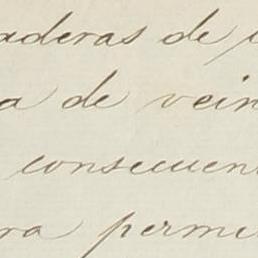 aderas de
a de vein
consecuen
ra perme